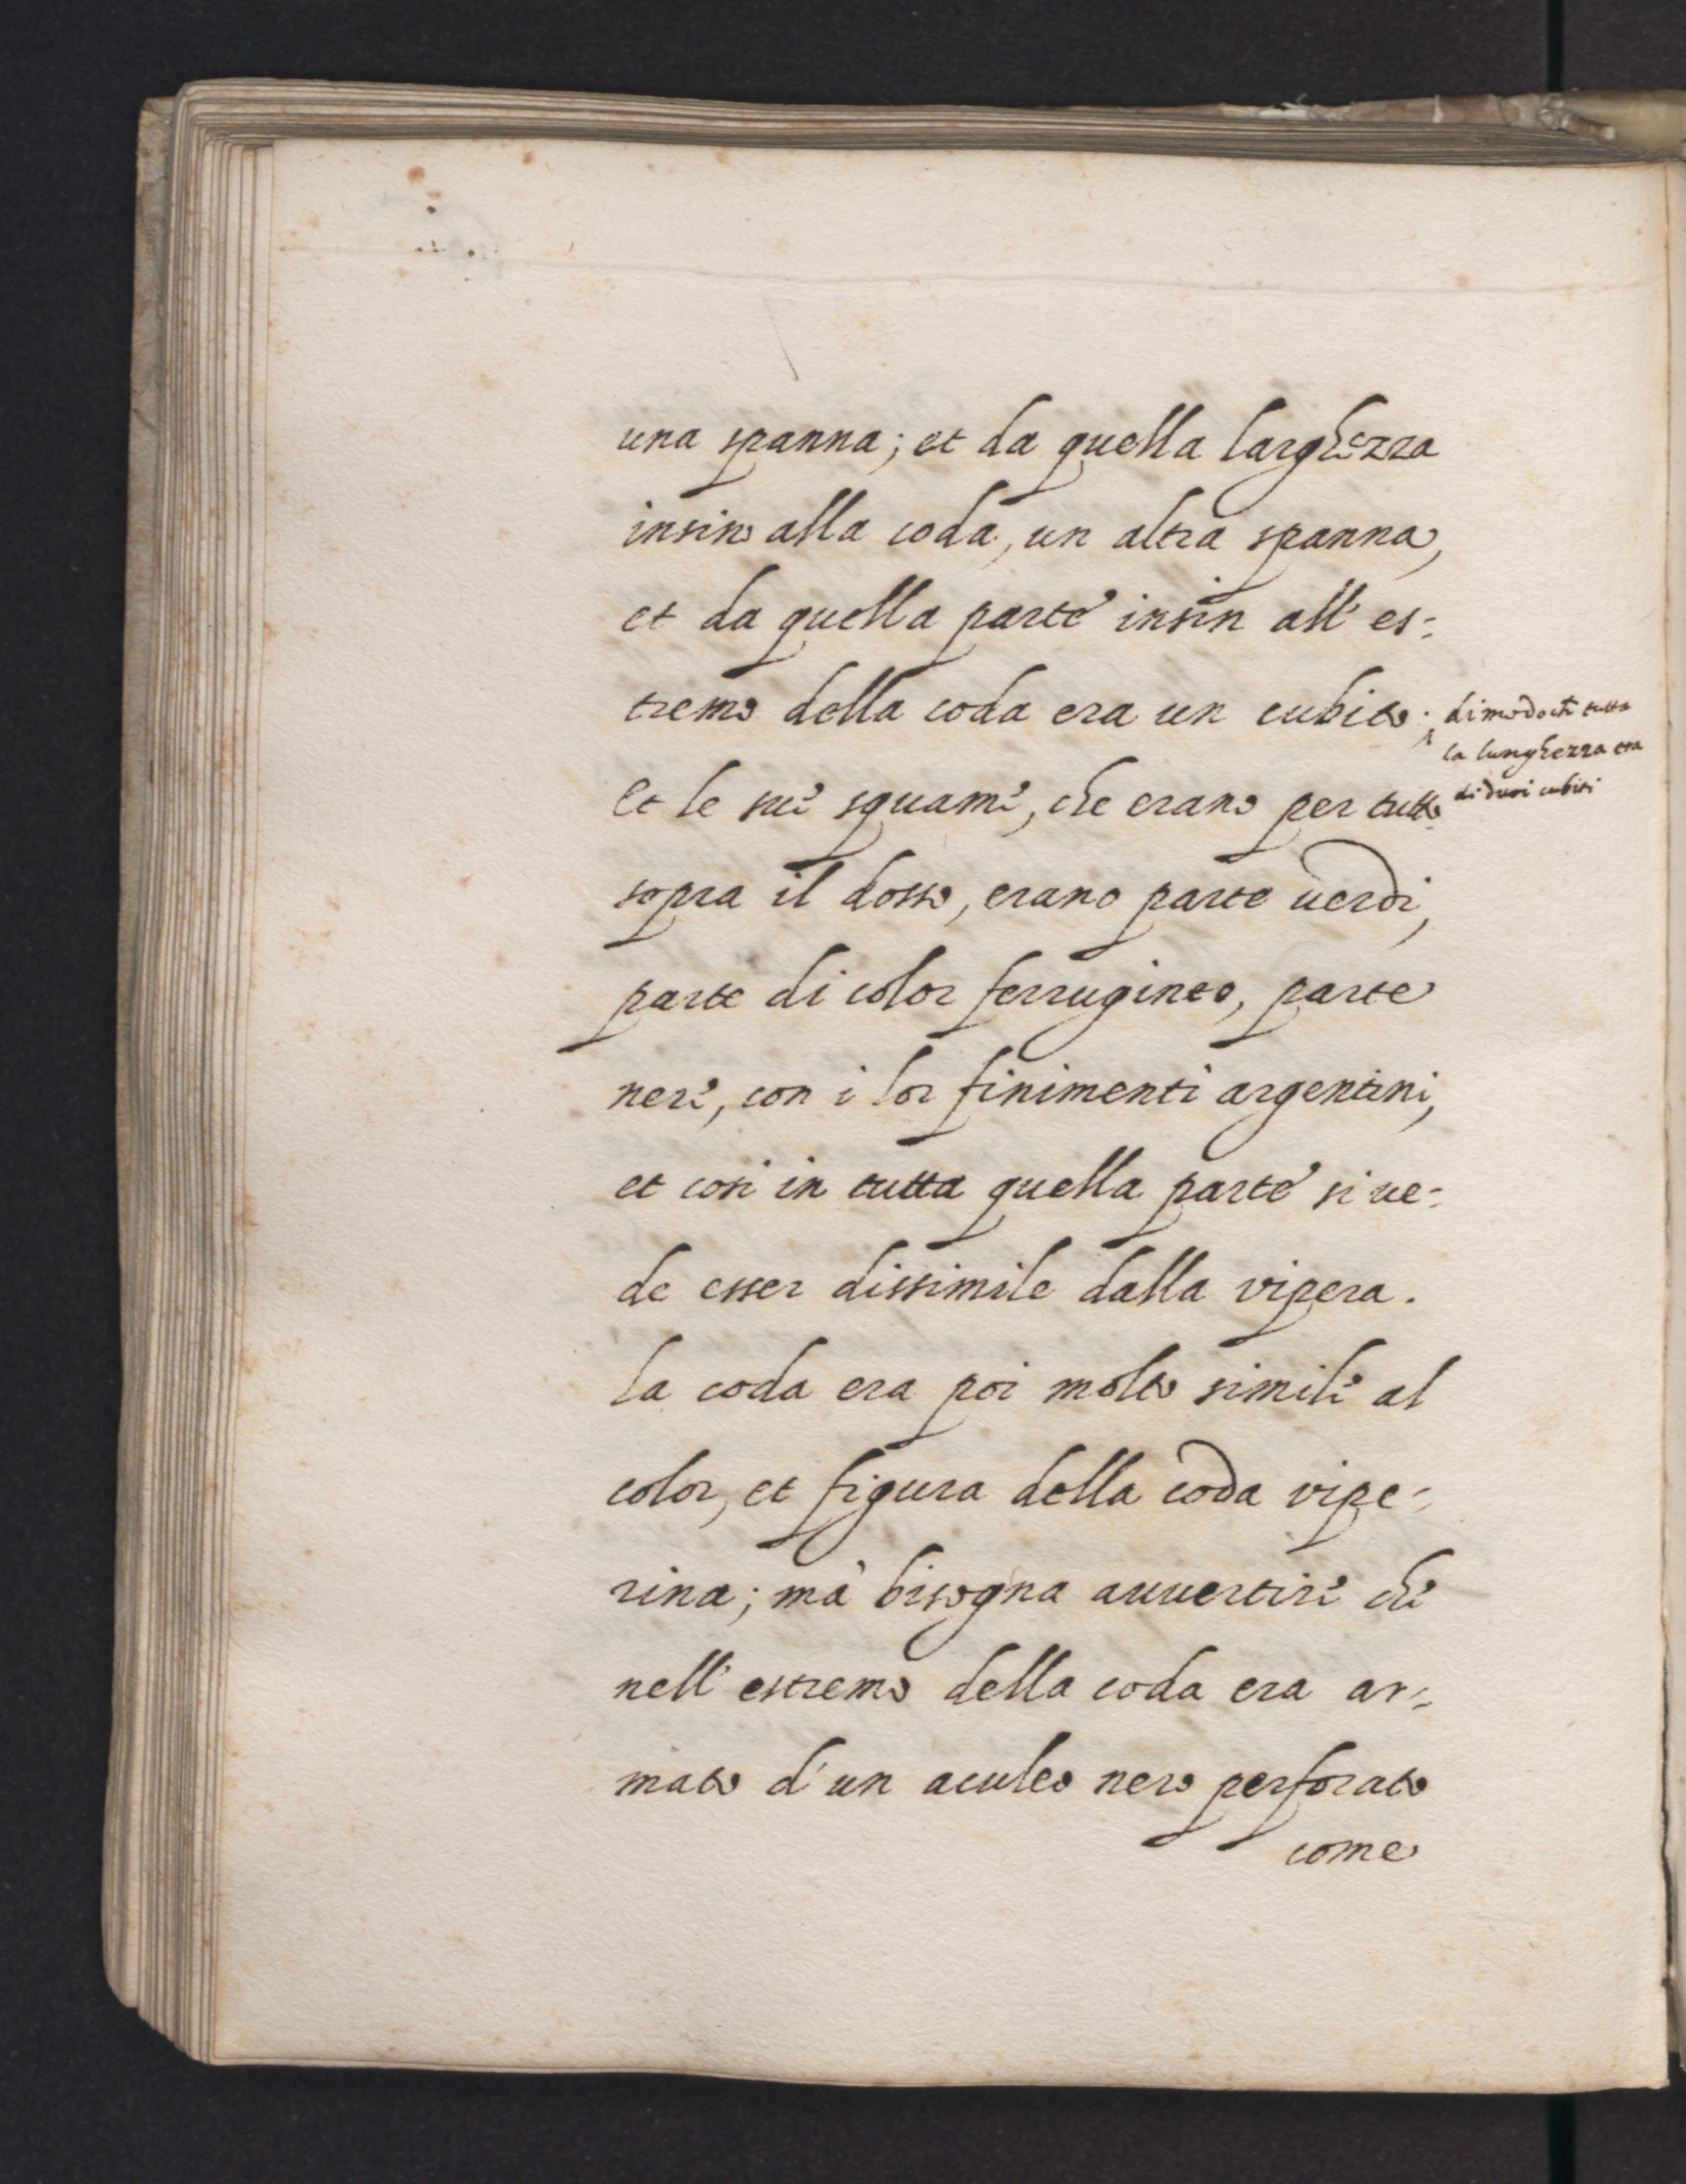 una spanna; et da quella larghezza
insino alla coda, un altra spanna,
et da quella parte insin all' es:
tremo della coda era un cubito.
dimodoche tutta
la lunghezza era
di duoi cubiti
Et le sue squame, che erano per tutto
sopra il dosso, erano parte uerdi,
parte di color ferrugineo, parte
nere, con i lor finimenti argentini,
et cosi in tutta quella parte si ue:
de esser dissimile dalla vipera.
la coda era poi molto simile al
color, et figura della coda vipe:
rina; mà bisogna auuertire che
nell' estremo della coda era ar:
mato d' un aculeo nero perforato
come